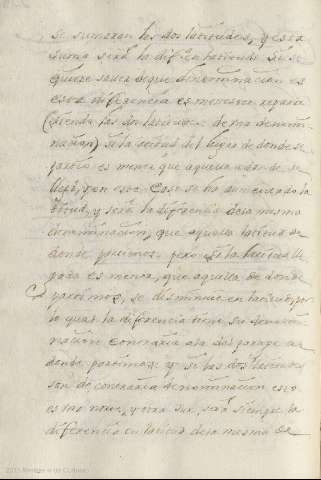 se sumaran las dos latitudes, y esta
suma será la difª en latitud. Si se
quiere saber de que denominacion es
esta diferencia es menester reparar
(siendo las dos latitudes de una denomi
nacion) si la latitud del lugar de donde se
partio es menor que aquella a donde se
llegó, y en ese caso se ha aumentado la
latitud, y será la diferencia de la misma
denominacion, que aquella latitud de
donde partimos. pero si la latitud lle
gada es menor, que aquella de donde
partimos, se disminuie en latitud, por
lo qual la diferencia tiene su denomi
nacion contraria a la del parage de
donde partimos: y si las dos latitudes
son de contraria denominacion esto
es una norte, y otra sur, será siempre la
diferencia en latitud de la misma de
2011 Ministerio de Cultura